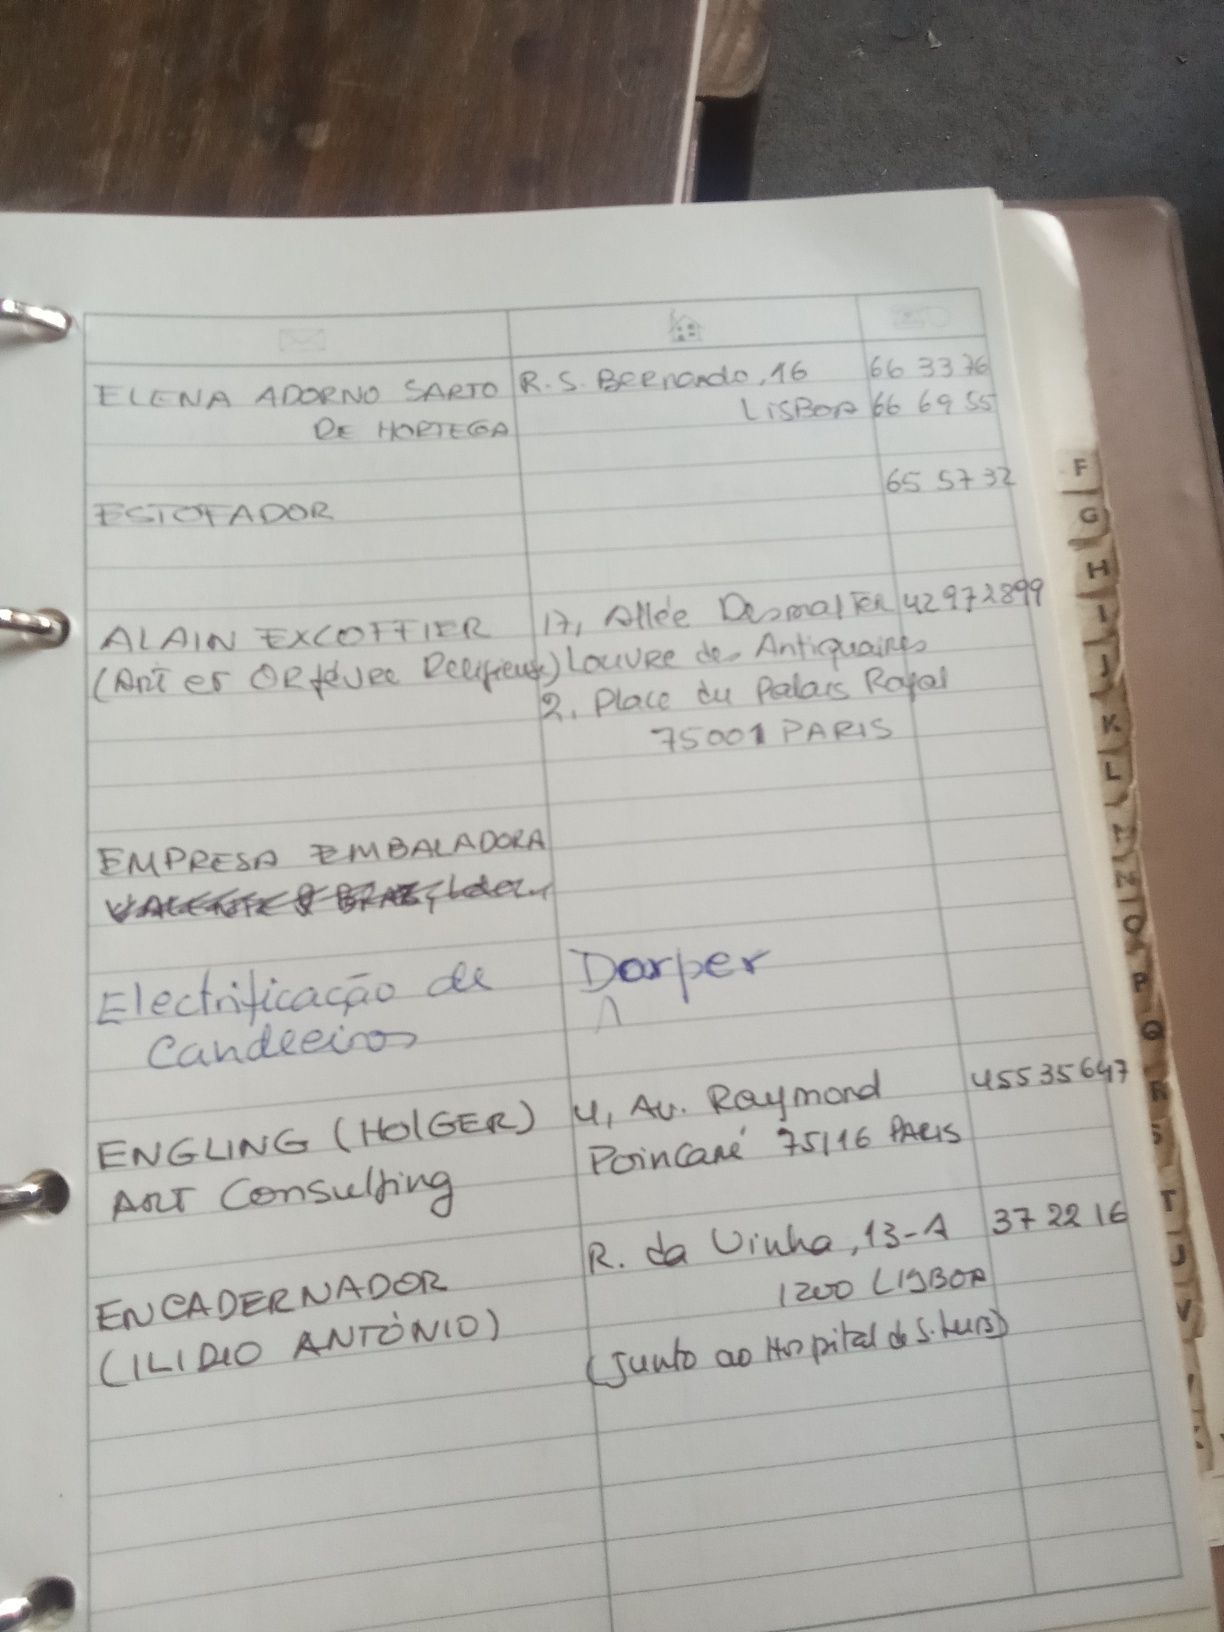 ELENA ADORNO SARTO R.S. Bernardo, 16 66 33 76
DE HORTEGA LISBOA 66 69 55
ESTOFADOR 65 57 32
ALAIN EXCOFFIER 17, Allée Desmalter 42972899
(Art et Orfévre Religieuse) Louvre des Antiquaires
2, Place du Palais Royal
75001 PARIS
EMPRESA EMBALADORA
Electrificação de Darper
Candeeiros
ENGLING (HOlGER) 4, Av. Raymond 45535647
ART Consulting Poincaré 75116 PARIS
ENCADERNADOR R. da Vinha, 13-A 37 22 16
(ILIDIO ANTÓNIO) 1200 LISBOA
(junto ao Hospital de S. Luis)
F
G
H
I
J
K
L
M
N
O
P
Q
R
S
T
U
V